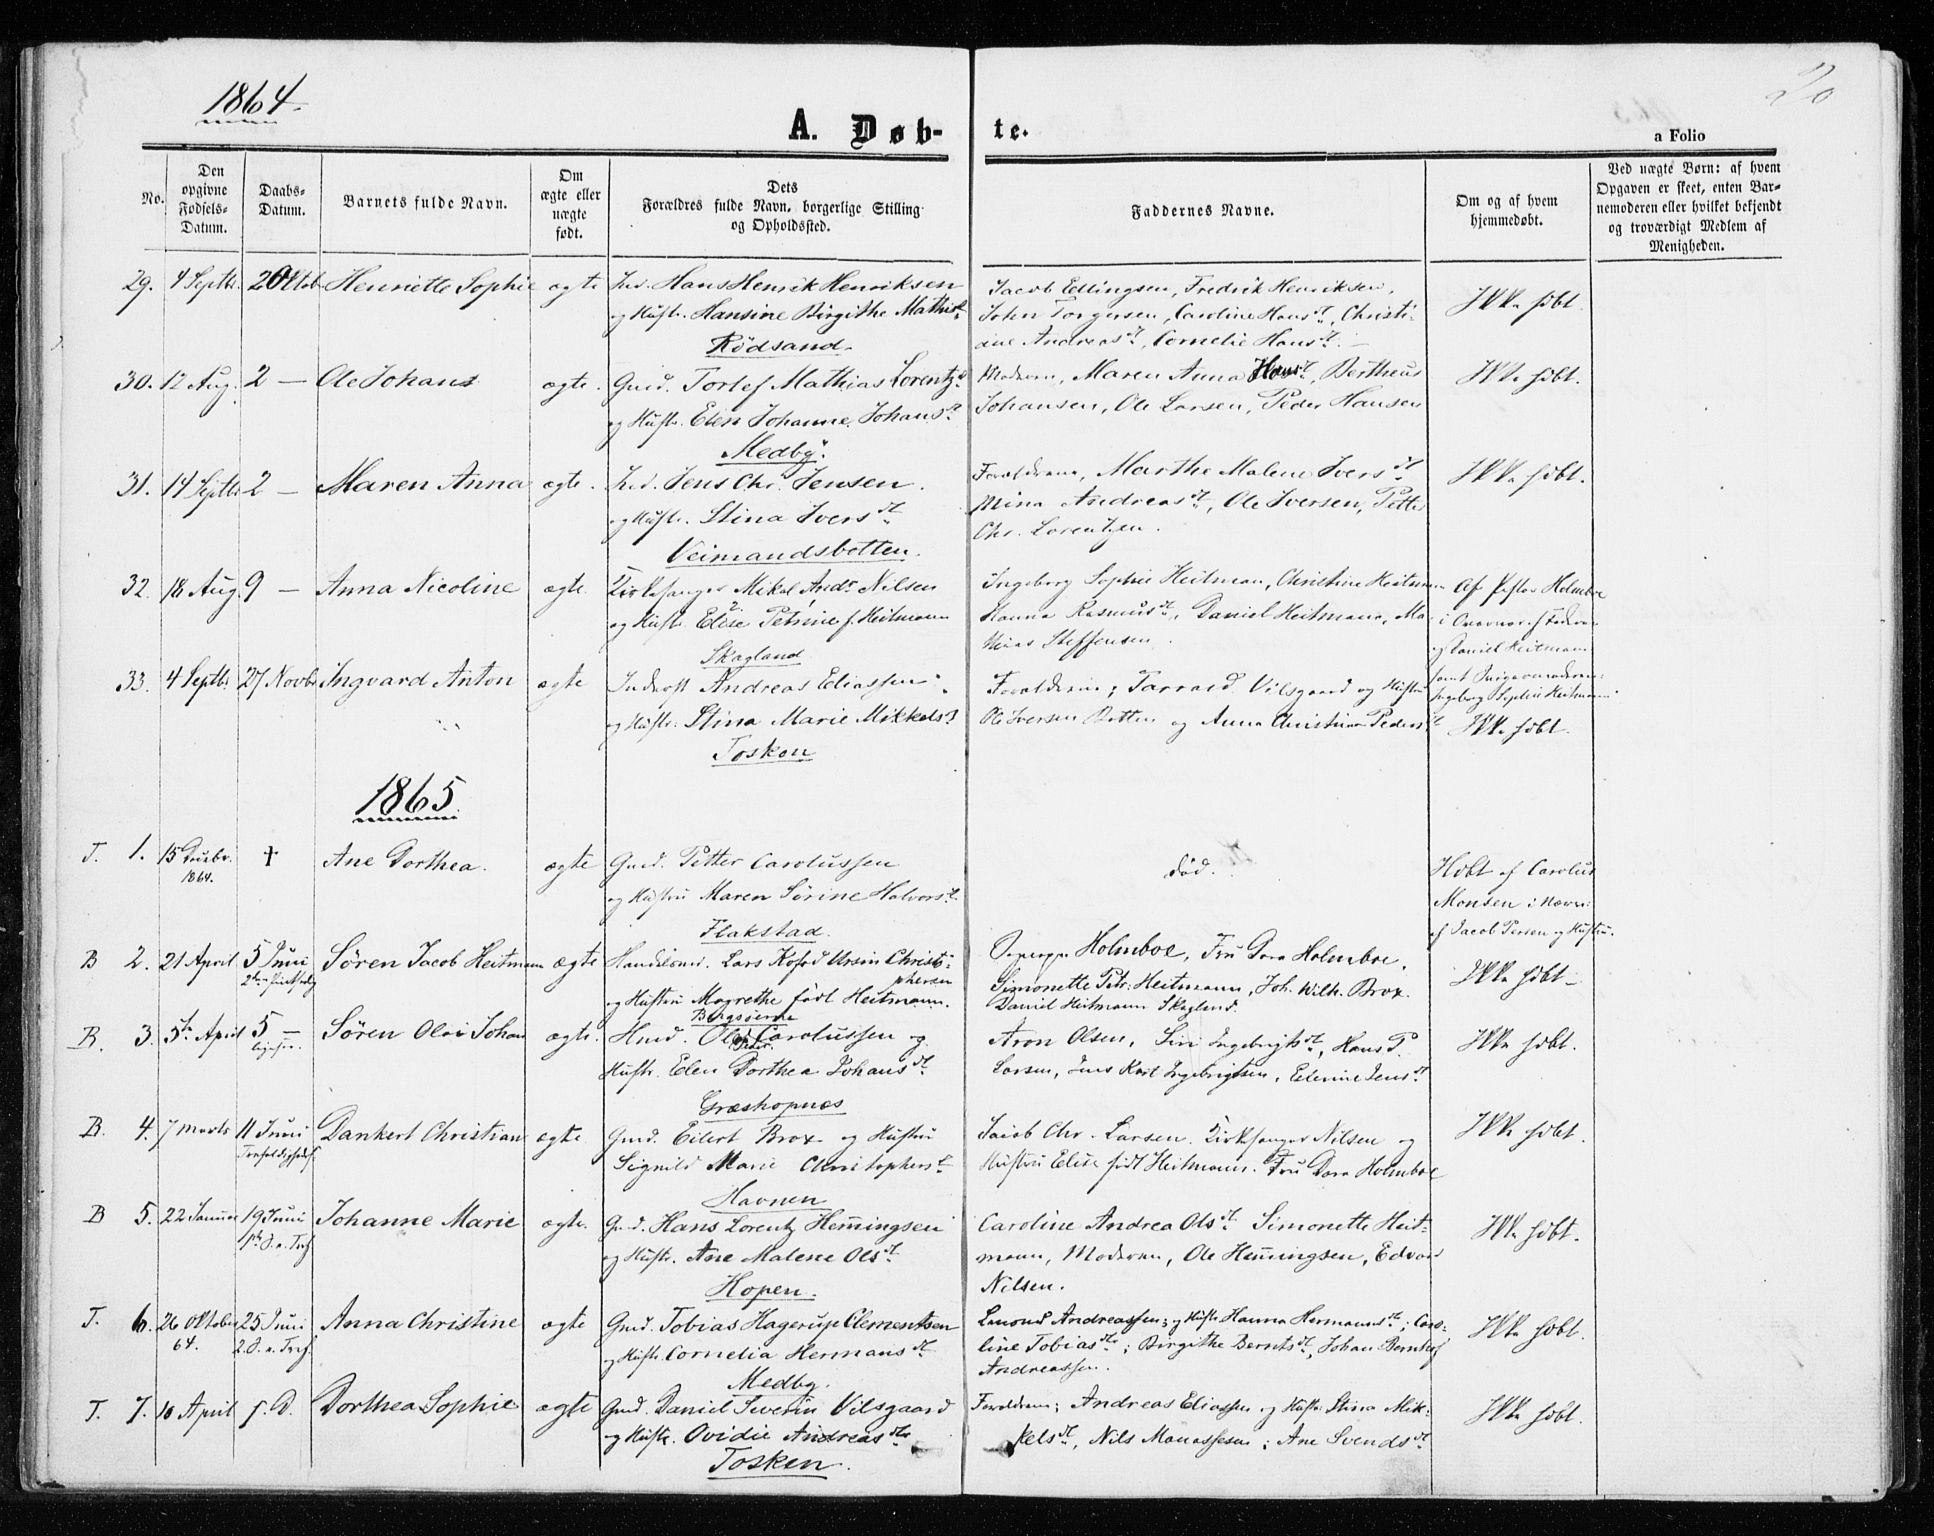 1864.
20
A. Døb-
te.
a Folio
No.
Den opgivne Fødsels-Datum.
Daabs-Datum.
Barnets fulde Navn.
Om ægte eller uægte født.
Dets Forældres fulde Navn, borgerlige Stilling og Opholdssted.
Faddernes Navne.
Om og af hvem hjemmedøbt.
Ved uægte Børn: af hvem Opgaven er skeet, enten Barnemoderen eller hvilket bekjendt og troværdigt Medlem af Menigheden.
29. 4 Septb. 2 Oktob Henriette Sophie ægte Ind. Hans Henrik Henriksen
og Hustr. Hansine Birgithe Mathisd.
Rödsand.
Jacob Ellingsen, Fredrik Henriksen,
John Torgersen, Caroline Hansdt., Christi-
ane Andreasdt., Cornelie Hansdt.
Ikke höbt.
30. 12 Aug. 2 — Ole Johans ægte. Gmd. Torlef Mathias Lorentzs
og Hustr. Elen Johanne Johansdt
Medby.
Moderen, Maren Anna Hansdt, Bertheus
Johansen, Ole Larsen, Peder Hansen
Ikke höbt.
31. 14 Septb 2 — Maren Anna ægte. Ind. Jens Chr. Jensen.
og Hustr. Stina Iversdt
Veimandsbotten.
Forældrene, Marthe Malene Iversdt
Mina Andreasdt, Ole Iversen, Petter
Chr. Lorentzen.
Ikke höbt.
32. 18 Aug 9 — Anna Nicoline ægte. Kirkesanger Mikal Andr. Nilsen
og Hustr. Elise Petrine f. Heitmann
Skagland
Ingeborg Sophie Heitman, Christine Heitmann
Hanna Rasmusdt, Daniel Heitmann, Ma-
thias Steffensen.
Af Holmboe
og Daniel Heitmann
samt
Ingeborg Sophie Heitmann
33. 4 Septb. 27 Novb Ingvard Anton ægte Inderst Andreas Eliassen
og Hustr. Stina Marie Mikkelsd
Tosken
Forældrene; Tarrald Vilsgaard og Hustru
Ole Iversen Botten og Anna Christine Pedersdt
Ikke höbt.
1865.
T. 1. 15 Decbr. 1864. † Ane Dorthea. ægte Gmd. Petter Carolussen
og Hustru Maren Sörine Halvorsdt.
Flakstad.
död.
Höbt af Carolus
Monsen i Nærv.
af Jacob Persen og Hustru.
B 2. 21 April 5 Juni Sören Jacob Heitmann ægte Handelsmd. Lars Kofod Ursin Christo-
phersen
og Hustru Magrethe födt Heitmann.
Bergsöerne
Holmboe, Fru Dora Holmboe,
Simonette Petr. Heitmann, Joh. Wilh. Brox.
Daniel Heitmann Skagland.
Ikke höbt —
B. 3. 5te April 5 — Sören Olai Johan ægte. Hmd. Ole Carolussen og
Hustr. Elen Dorthea Johansdt
Græshopnes
Aron Olsen, Siri Ingebrigtsdt, Hans P.
Larsen, Jens Karl Ingebrigtsen, Ederine Jensdt
Ikke höbt.
B. 4. 7 Marts 11 Juni Dankert Christian ægte Gmd. Eilert Brox og Hustru
Signild Marie Christophersdt
Havnen
Jacob Chr. Larsen. Kirkesanger Nilsen og
Hustru Elise födt Heitmann. Fru Dora Holmboe
Ikke höbt.
B 5. 22 Januar 19 Juni Johanne Marie ægte. Gmd. Hans Lorentz Hemingsen
og Hustr. Ane Malene Olsdt
Hopen.
Caroline Andrea Olsdt Simonette Heit-
mann, Moderen, Ole Hemingsen, Edvard
Nilsen.
Ikke höbt.
T. 6. 26 Oktober 64. 25 Juni 2. S. e. Tref. Anna Christine ægte Gmd. Tobias Hagerup Clementsen
og Hustr. Cornelia Hermansdt
Medby.
Andreassen; og Hustr Hanna Hermansdt; Caro-
line Tobiasdt; Birgithe Berntsdt, Johan Bernhof
Andreassen.
Ikke höbt.
T. 7. 10 April s. D. Dorthea Sophie ægte Gmd. Daniel Severin Vilsgaard
og Hustr. Ovidie Andreasdt
Tosken.
Forældrene; Andreas Eliassen og Hustr Stina Mik-
kelsdt, Nils Manassesen; Ane Svendsdt
Ikke höbt.